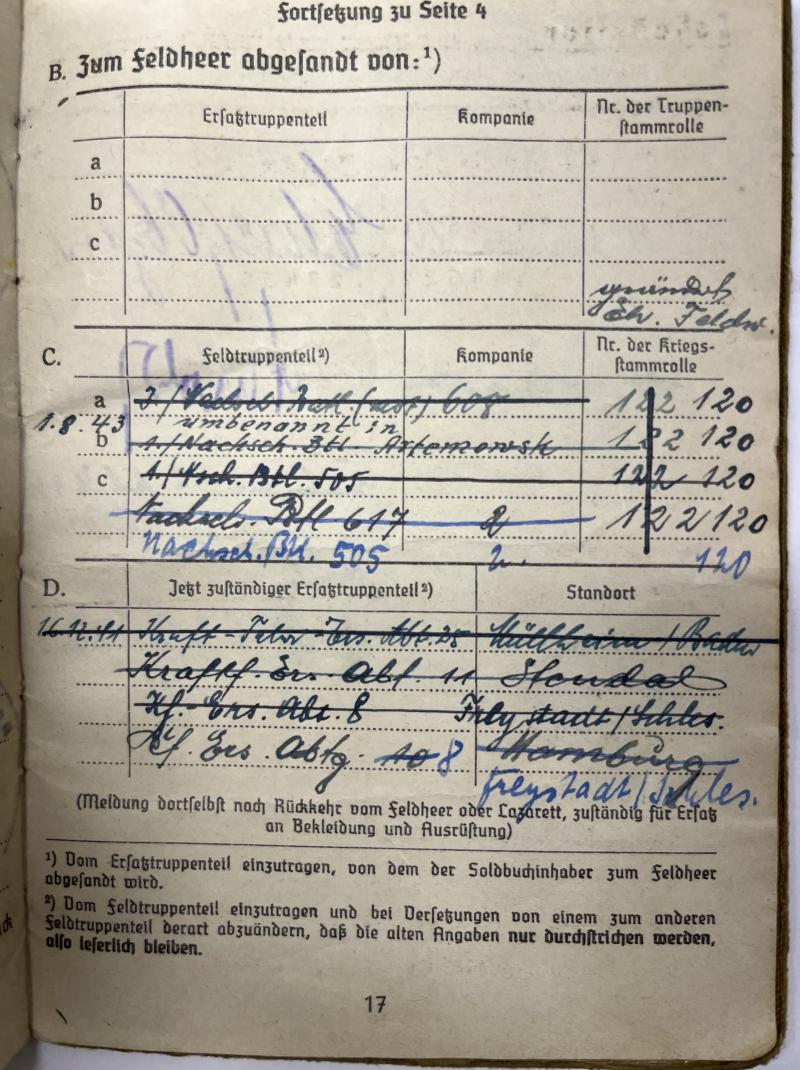 Fortsetzung zu Seite 4
B. Zum Feldheer abgesandt von:¹)
Ersatztruppenteil Kompanie Nr. der Truppen-
stammrolle
a
b
c
Feldw.
C. Feldtruppenteil²) Kompanie Nr. der Kriegs-
stammrolle
a 3./ Nachsch. Batl. (mot) 608 122 120
1.8.43 umbenannt in
b 1./ Nachsch. Btl. Artemowsk 122 120
c 1./ Nsch. Btl. 505 122 120
Nachsch. Btl 617 2 122 120
Nachsch. Btl. 505 2. 120
D. Jetzt zuständiger Ersatztruppenteil²) Standort
16.12.41 Kraft-Fahr-Ers. Abt. 25 Müllheim / Baden
Kraftf. Ers. Abt. 11 Stendal
Kf.-Ers. Abt. 8 Freystadt / Schles.
Kf. Ers Abtg. 10 8 Hamburg
Freystadt / Schles.
(Meldung dortselbst nach Rückkehr vom Feldheer oder Lazarett, zuständig für Ersatz
an Bekleidung und Ausrüstung)
¹) Vom Ersatztruppenteil einzutragen, von dem der Soldbuchinhaber zum Feldheer
abgesandt wird.
²) Vom Feldtruppenteil einzutragen und bei Versetzungen von einem zum anderen
Feldtruppenteil derart abzuändern, daß die alten Angaben nur durchstrichen werden,
also leserlich bleiben.
17